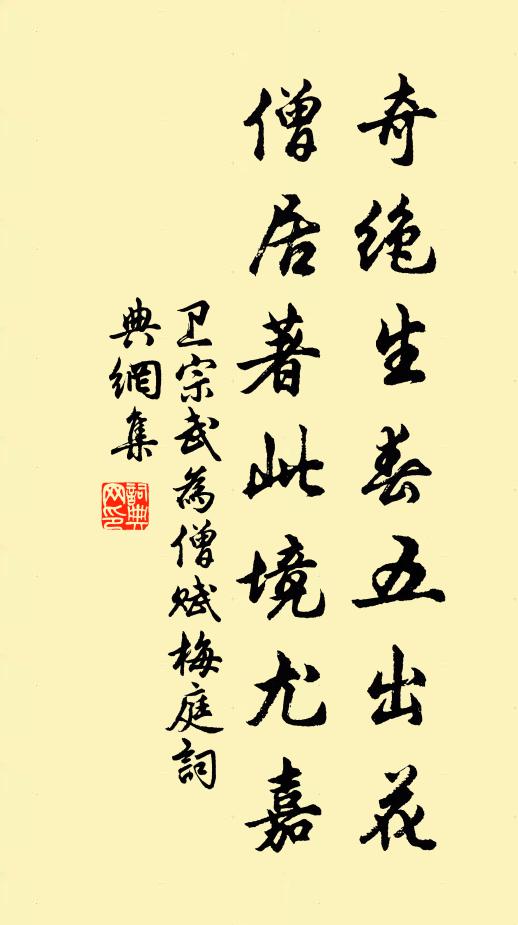 奇绝生春五出花
僧居著此境尤嘉
卫宗武為僧赋梅庭詞
典網集
詞典网印